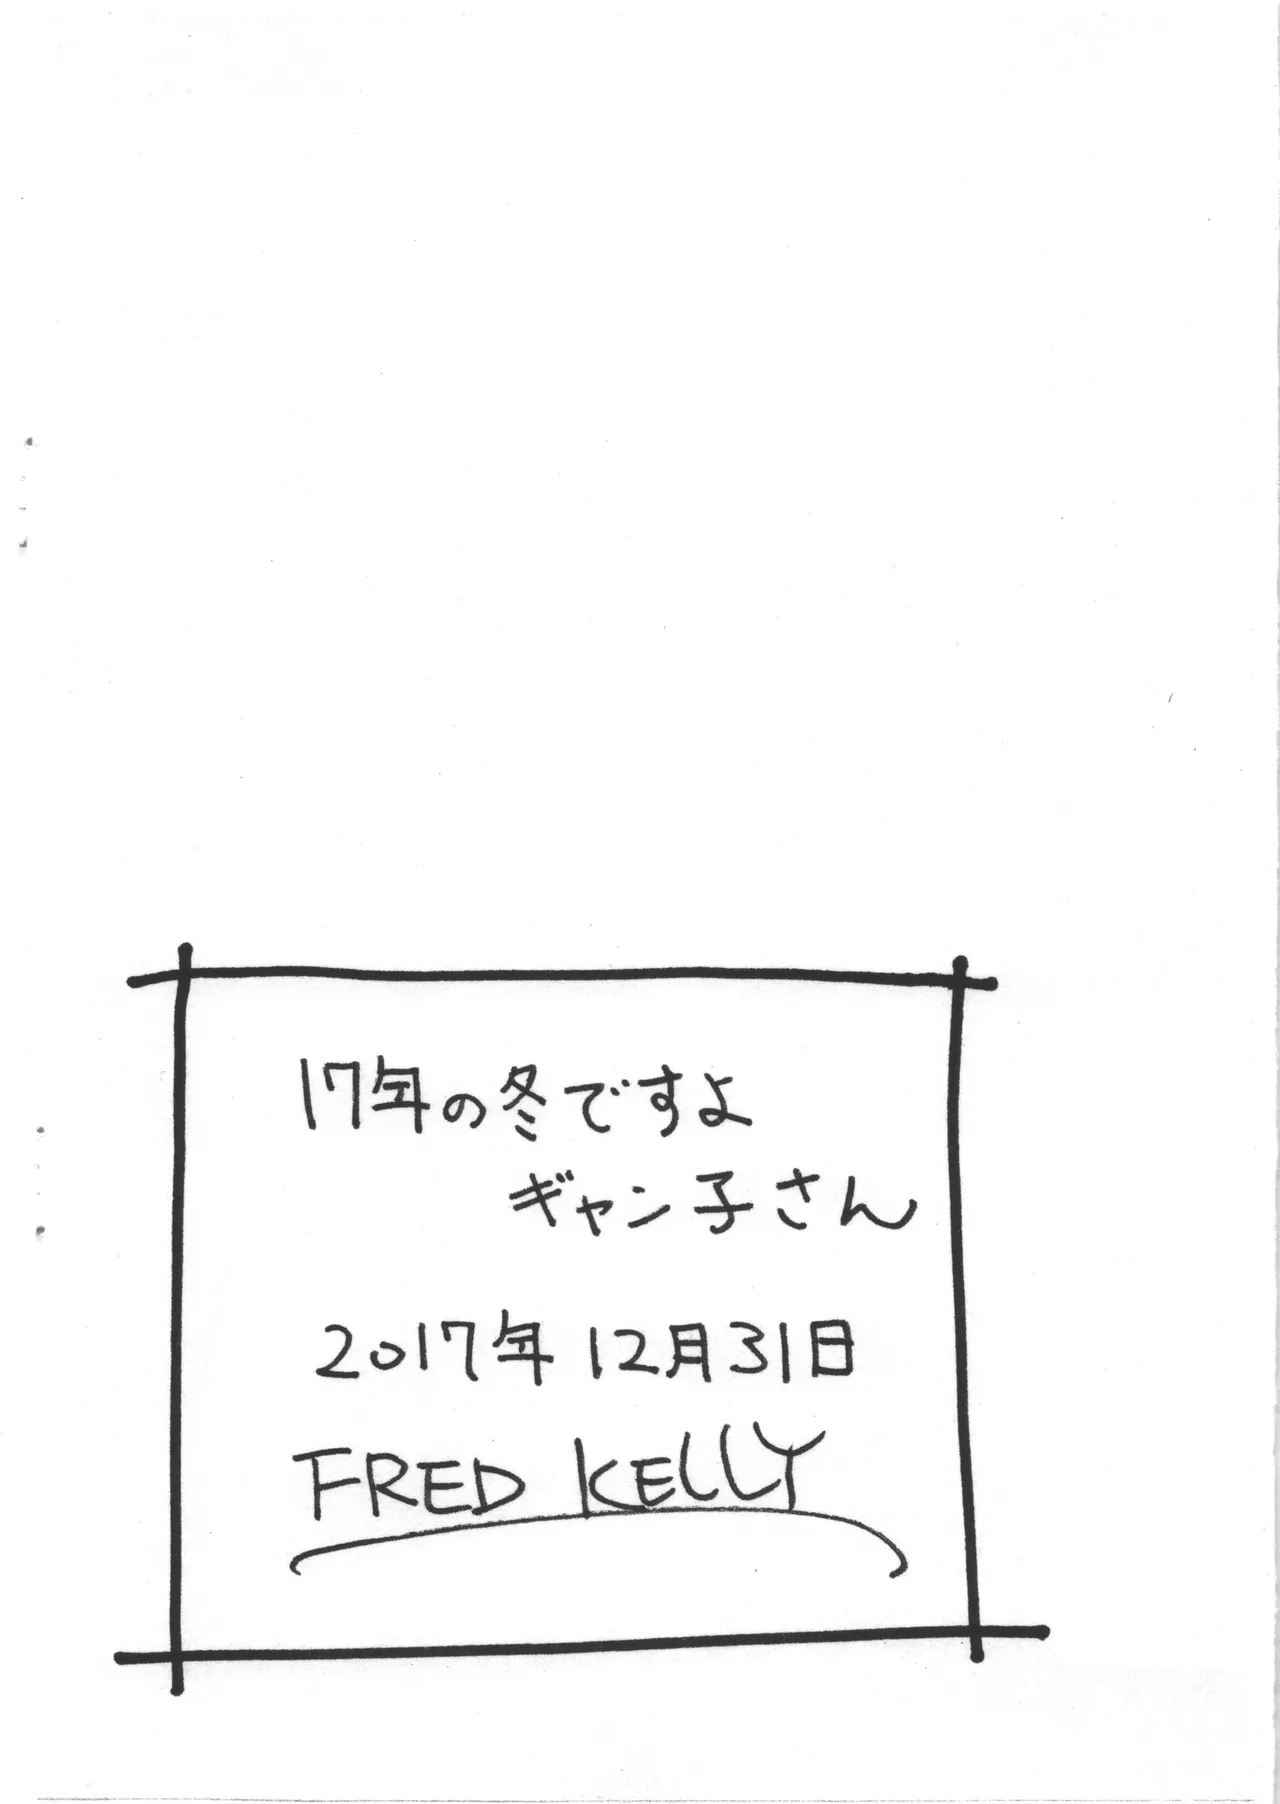 17年の冬ですよ
ギャン子さん
2017年12月31日
FRED KELLY